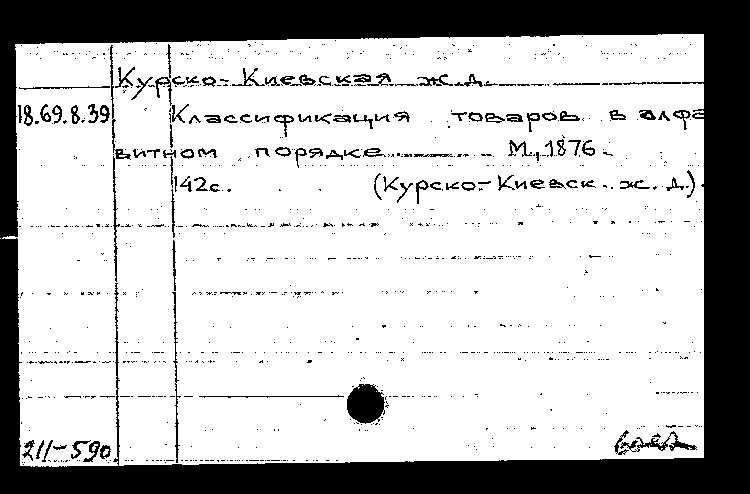 Курско-Киевская ж.д.
18.69.8.39. Классификация товаров в алфа
витном порядке........... М., 1876.
142с. (Курско-Киевск. ж. д.).
211-590.